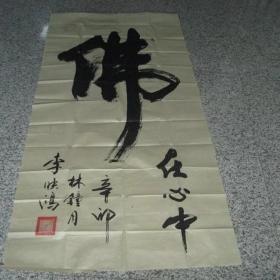 佛
在心中
辛卯
林钟月
李映鸿